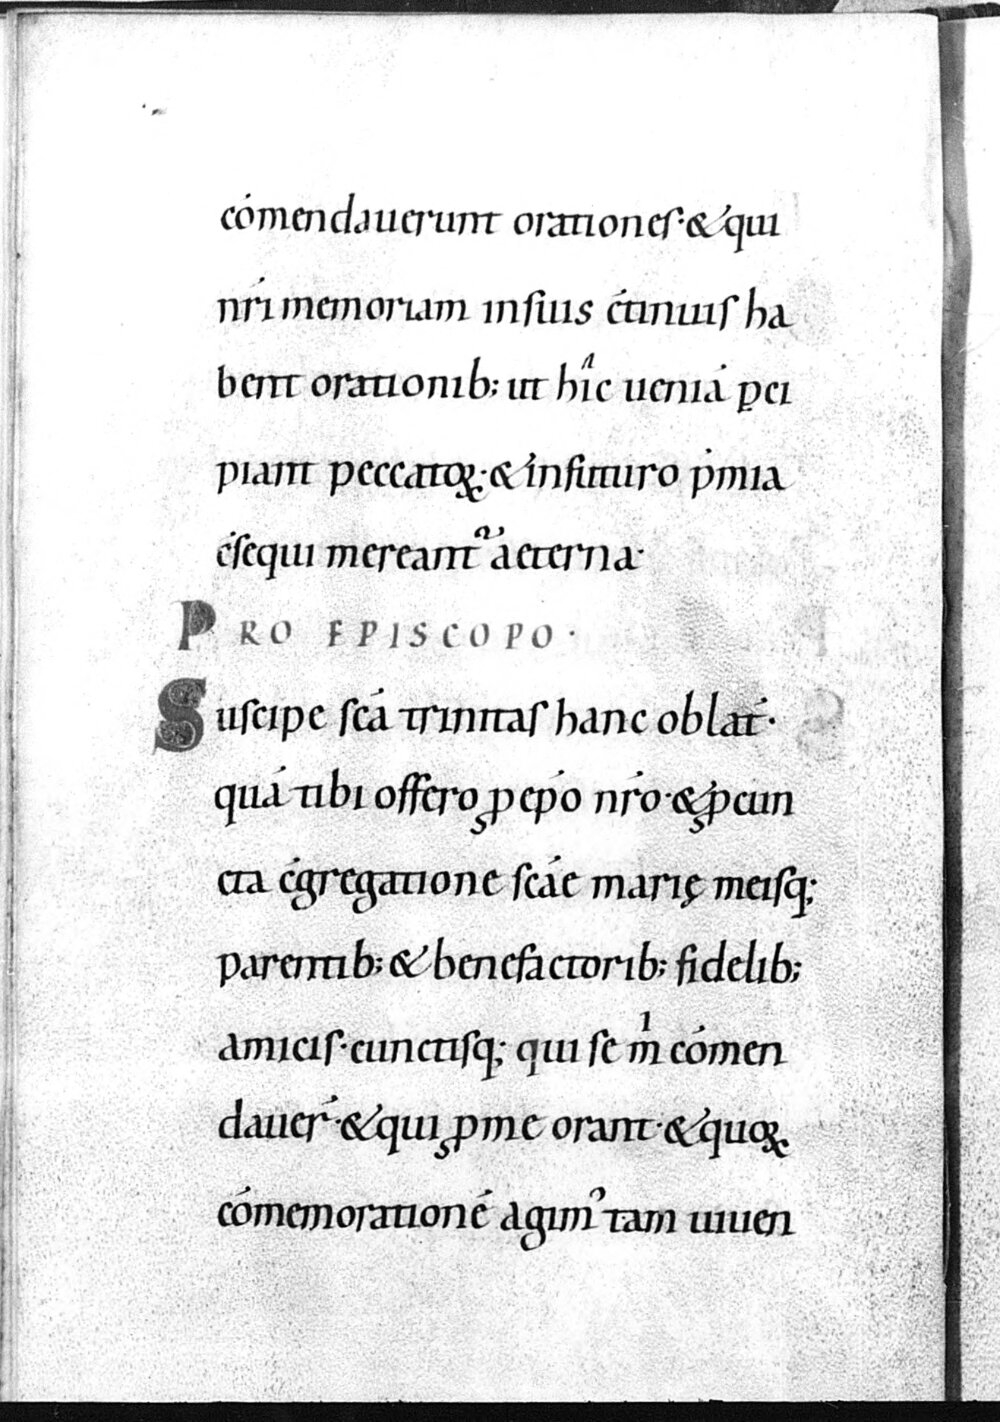 cōmendauerunt orationeſ· & qui
nr̄i memoriam in ſuis c̄tinuiſ ha
bent orationib; ut hi̾c ueniā ꝑci
piant peccatoꝝ· & in futuro p̄mia
c̄ſequi mereantᷣ aeterna·
PRO EPISCOPO·
Suſcipe ſcā trinitaſ hanc oblat̄·
quā tibi offero ꝓ ep̄o nr̄o· & ꝓ cun
cta c̄gregatione ſcāe marię meiſq;
parentib; & benefactorib; fidelib;
amiciſ· cunctiſq; qui ſe mͥ cōmen
dauer̄· & qui ꝓ me orant· & quoꝝ
cōmemorationē agim᾽ tam uiuen